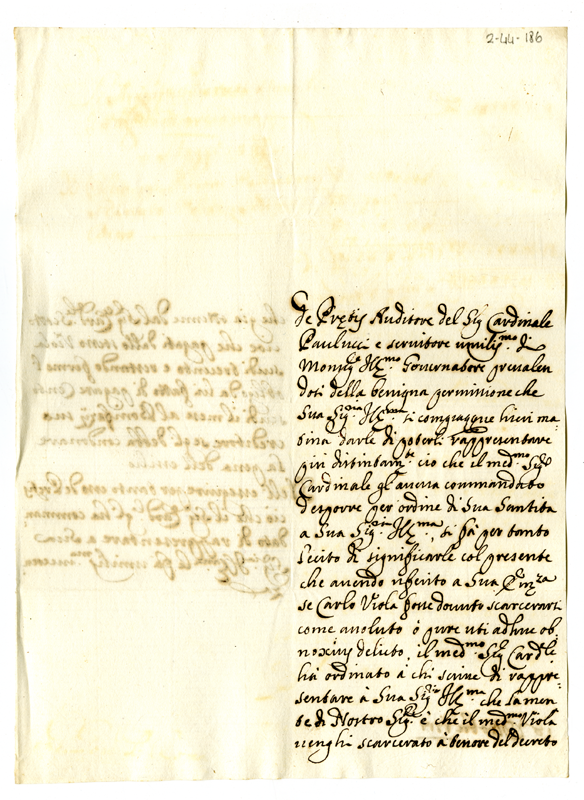 2-44-186
De Pretis Auditore del Sig.r Cardinale
Paulucci e servitore umilis.mo di
Monsig.re Ill.mo Governatore prevalen
dosi della benigna permissione che
Sua Sig.ria Ill.ma si compiacque hieri ma
tina darle di poterli rappresentare
piu distintam.te ciò che il med.mo Sig.r
Cardinale gl'aveva commandato
d'esporre per ordine di Sua Santita
a Sua Sig.ria Ill.ma, si fà per tanto
lecito di significarle col presente
che avendo riferito a Sua Em.za
se Carlo Viola fosse dovuto scarcerarsi
come assoluto ò pure uti adhuc ob
noxius delicto, il med.mo Sig.r Card.le
hà ordinato à chi scrive di rappre
sentare à Sua Sig.ria Ill.ma che la men
te di Nostro Sig.re è che il med.mo Viola
venghi scarcerato à tenore del decreto